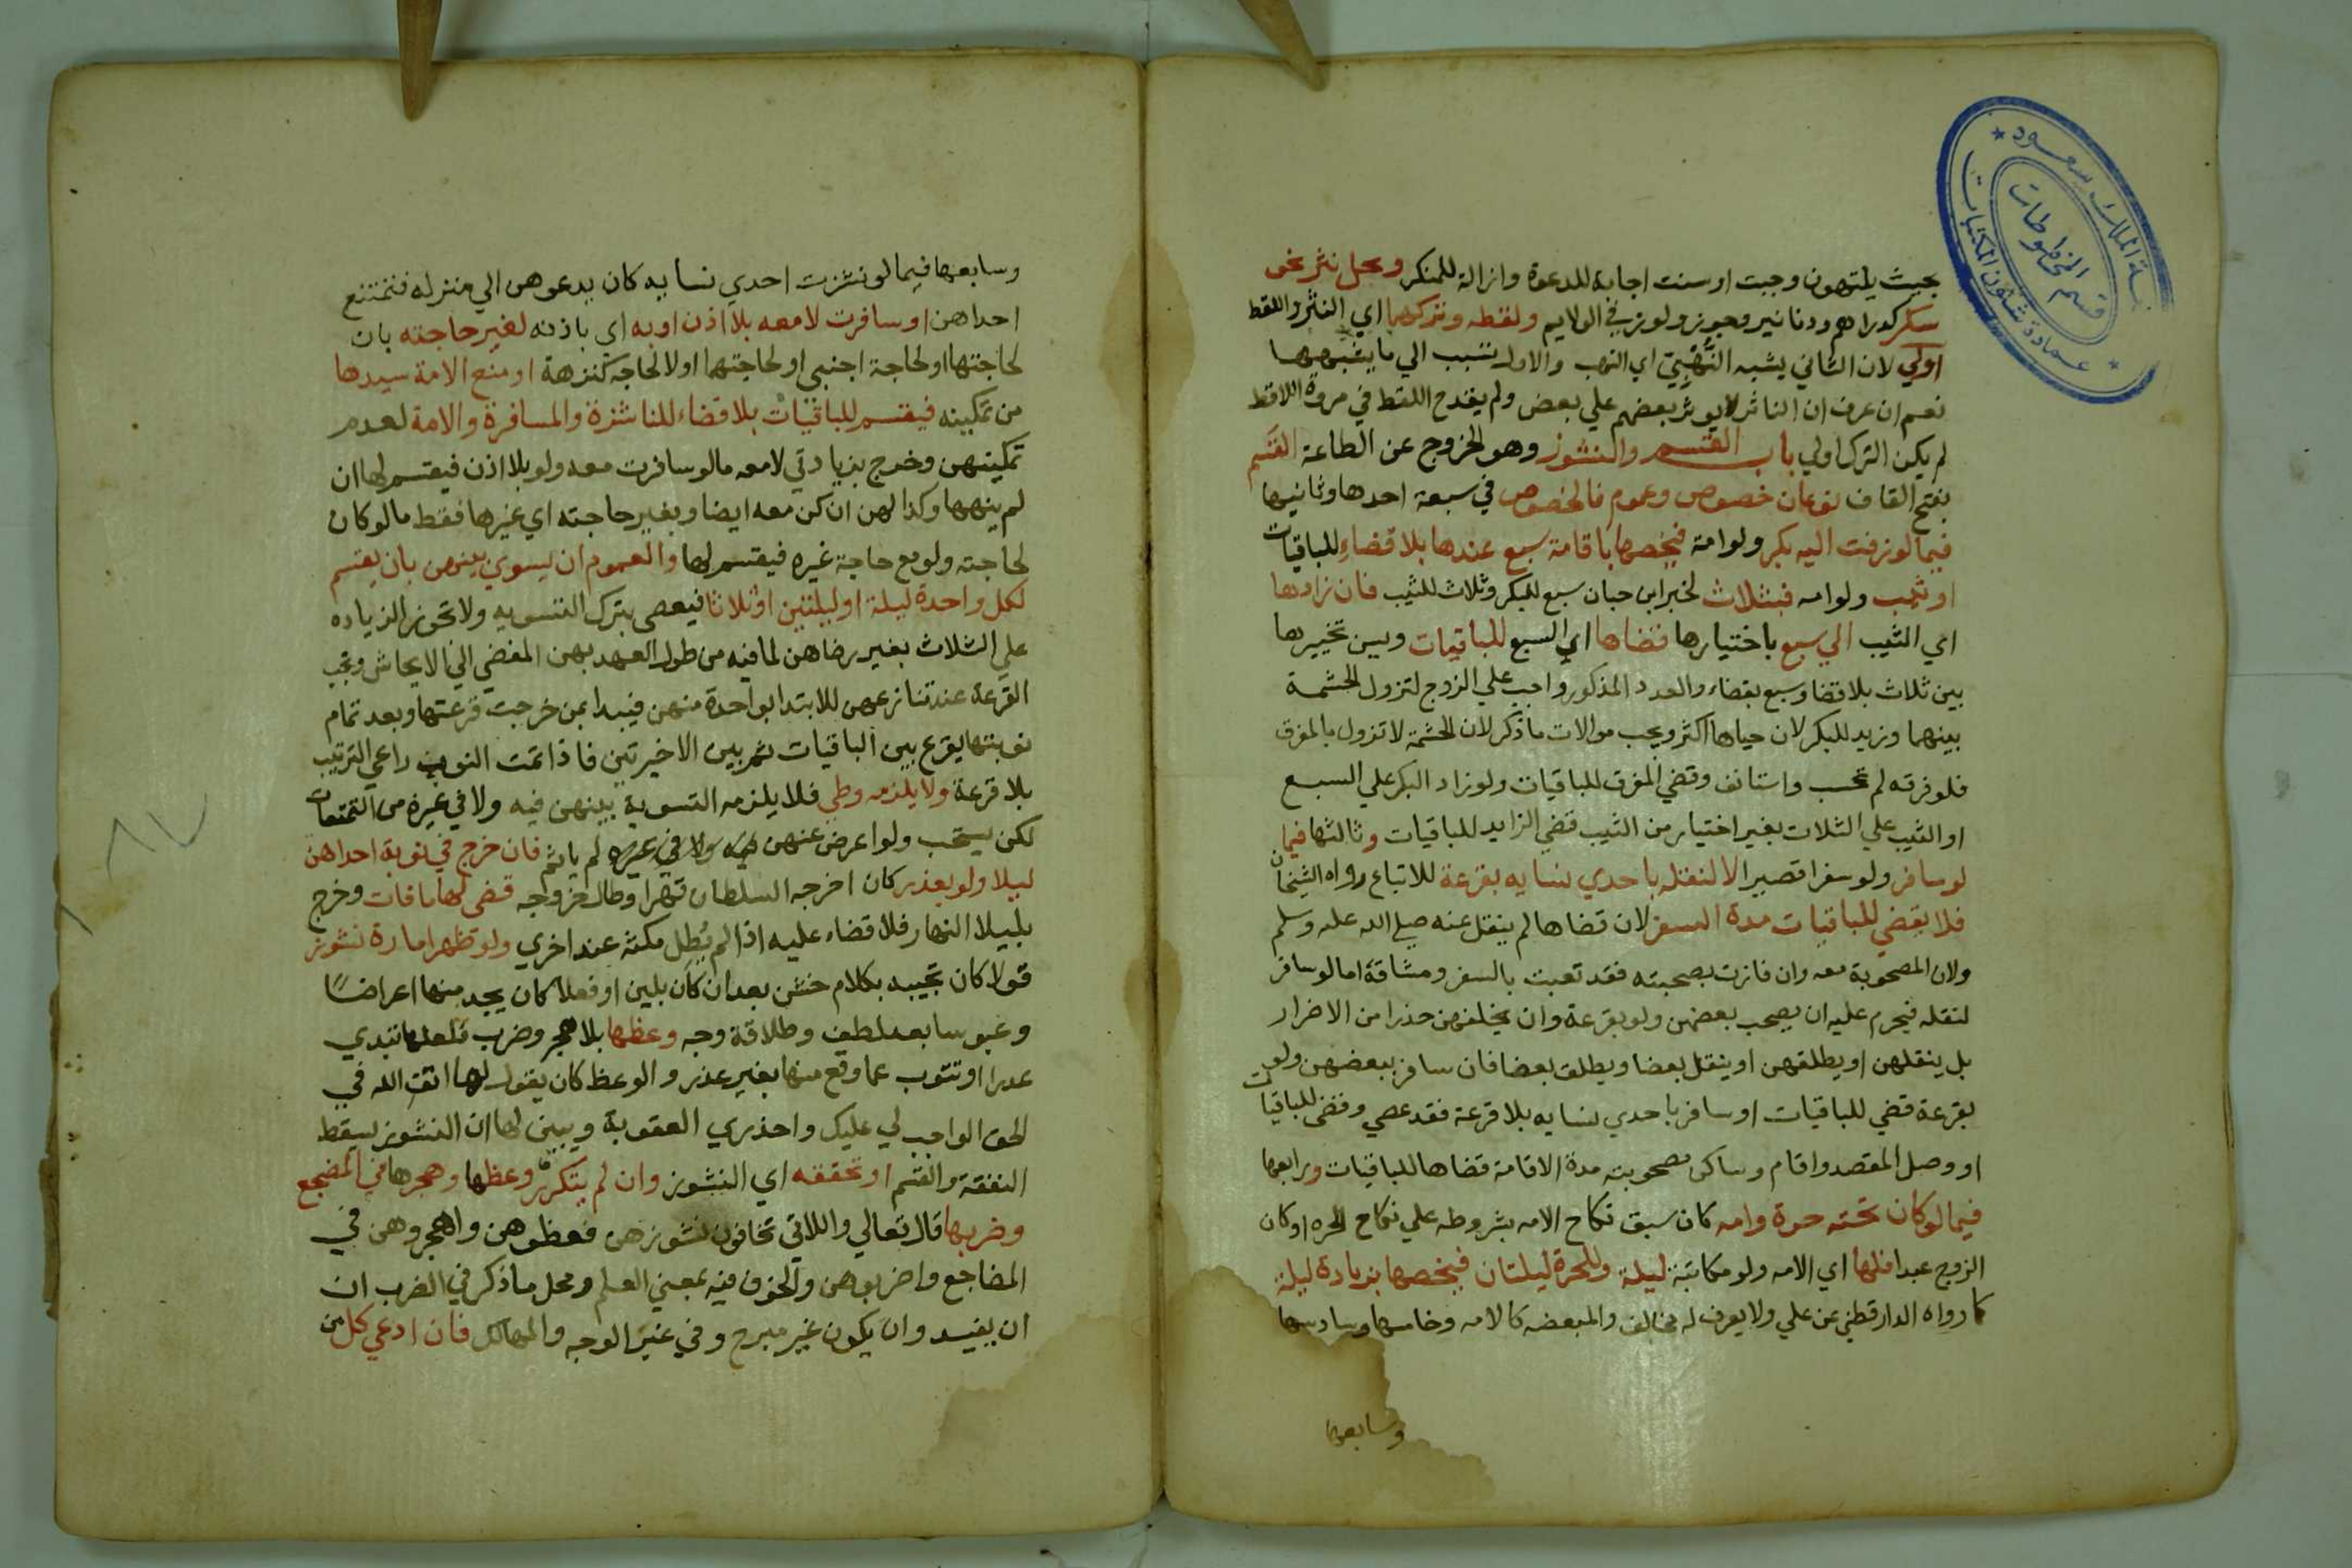 بحيث ينتهون وجبت او سنت اجابه للدعوة وازالة للمنكر ويحل نثر نحو
سكر كدراهم ودنانير وجوز ولوز في الولايم ولقطه وتركهما اي النثر واللقط
اولي لان الثاني يشبه النُّهْبَي اي النهب والاول تسبب الي ما يشبهها
نعم ان عرف ان الناثر لا يوثر بعضهم علي بعض ولم يقدح اللقط في مروة اللاقط
لم يكن الترك اولي باب القسم والنشوز وهو الخروج عن الطاعة القسم
بفتح القاف نوعان خصوص وعموم فالخصوص في سبعة احدها وثانيها
فيما لو زفت اليه بكر ولو امة فيخصها باقامة سبع عندها بلا قضاء للباقيات
او ثيب ولو امه فبثلاث لخبر ابن حبان سبع للبكر وثلاث للثيب فان زادها
اي الثيب الي سبع باختيارها قضاها اي السبع للباقيات وسن تخييرها
بين ثلاث بلا قضا وسبع بقضاء والعدد المذكور واجب علي الزوج لتزول الحشمة
بينهما وزيد للبكر لان حياها اكثر ويجب موالات ما ذكر لان الحشمة لا تزول بالمفرق
فلو فرقه لم تحسب واستانف وقضي المفرق للباقيات ولو زاد البكر علي السبع
او الثيب علي الثلاث بغير اختيار من الثيب قضي الزايد للباقيات وثالثها فيما
لو سافر ولو سفرا قصيرا لا لنقله باحدي نسايه بقرعة للاتباع رواه الشيخان
فلا يقضي للباقيات مدة السفر لان قضاها لم ينقل عنه صلي الله عليه وسلم
ولان المصحوبة معه وان فازت بصحبته فقد تعبت بالسفر ومشاقة اما لو سافر
لنقله فيحرم عليه ان يصحب بعضهن ولو بقرعة وان يخلفهن حذرا من الاضرار
بل ينقلهن او يطلقهن او ينقل بعضا ويطلق بعضا فان سافر ببعضهن ولو
بقرعة قضي للباقيات او سافر باحدي نسايه بلا قرعة فقد عصي وقضي للباقيات
او وصل المقصد واقام وساكن مصحوبته مدة الاقامة قضاها للباقيات ورابعها
فيما لو كان تحته حرة وامه كان سبق نكاح الامه بشروطه علي نكاح الحره او كان
الزوج عبدا فلها اي الامه ولو مكاتبة ليلة وللحرة ليلتان فيخصها بزيادة ليلة
كما رواه الدارقطني عن علي ولا يعرف له مخالف والمبعضه كالامه وخامسها وسادسها
وسابعها
وسابعها فيما لو نشزت احدي نسايه كان يدعوهن الي منزله فتمتنع
احداهن او سافرت لا معه بلا اذن او به اي باذنه لغير حاجته بان
لحاجتها او لحاجة اجنبي او لحاجتهما او لا لحاجه كنزهة او منع الامة سيدها
من تمكينه فيقسم للباقيات بلا قضاء للناشزة والمسافرة والامة لعدم
تمكينهن وخرج بزيادتي لا معه ما لو سافرت معه ولو بلا اذن فيقسم لها ان
لم ينهها وكذا لهن ان كن معه ايضا وبغير حاجته اي غيرها فقط ما لو كان
لحاجته ولو مع حاجة غيره فيقسم لها والعموم ان يسوي بينهن بان يقسم
لكل واحدة ليلة او ليلتين او ثلاثا فيعصي بترك التسويه ولا تجوز الزياده
علي الثلاث بغير رضاهن لما فيه من طول العهد بهن المفضي الي الايحاش وتجب
القرعة عند تنازعهن للابتدا بواحدة منهن فيبدا بمن خرجت قرعتها وبعد تمام
نوبتها يقرع بين الباقيات ثم بين الاخيرتين فاذا تمت النوب راعي الترتيب
بلا قرعة ولا يلزمه وطي فلا يلزمه التسوية بينهن فيه ولا في غيره من التمتعات
لكن يستحب ولو اعرض عنهن فيه ولا في غيره لم ياثم فان خرج في نوبة احداهن
ليلا ولو بعذر كان اخرجه السلطان قهرا وطال خروجه قضي لها ما فات وخرج
بليلا النهار فلا قضاء عليه اذا لم يُطِل مكثه عند اخري ولو تظهر امارة نشوز
قولا كان تجيبه بكلام خشن بعد ان كان بلين او فعلا كان يجد منها اعراضًا
وعبوسا بعد لطف وطلاقة وجه وعظها بلا هجر وضرب فلعلها تبدي
عذرا او تتوب عما وقع منها بغير عذر والوعظ كان يقول لها اتق الله في
الحق الواجب لي عليك واحذري العقوبة ويبين لها ان النشوز يسقط
النفقة والقسم او تحققه اي النشوز وان لم يتكرر وعظها وهجرها في المضجع
وضربها قال تعالي واللاتي تخافون نشوزهن فعظوهن واهجروهن في
المضاجع واضربوهن والخوف فيه بمعني العلم ومحل ما ذكر في الضرب ان
ان يفيد وان يكون غير مبرح وفي غير الوجه والمهالك فان ادعي كل من
قسم المخطوطات
عمادة شئون المكتبات